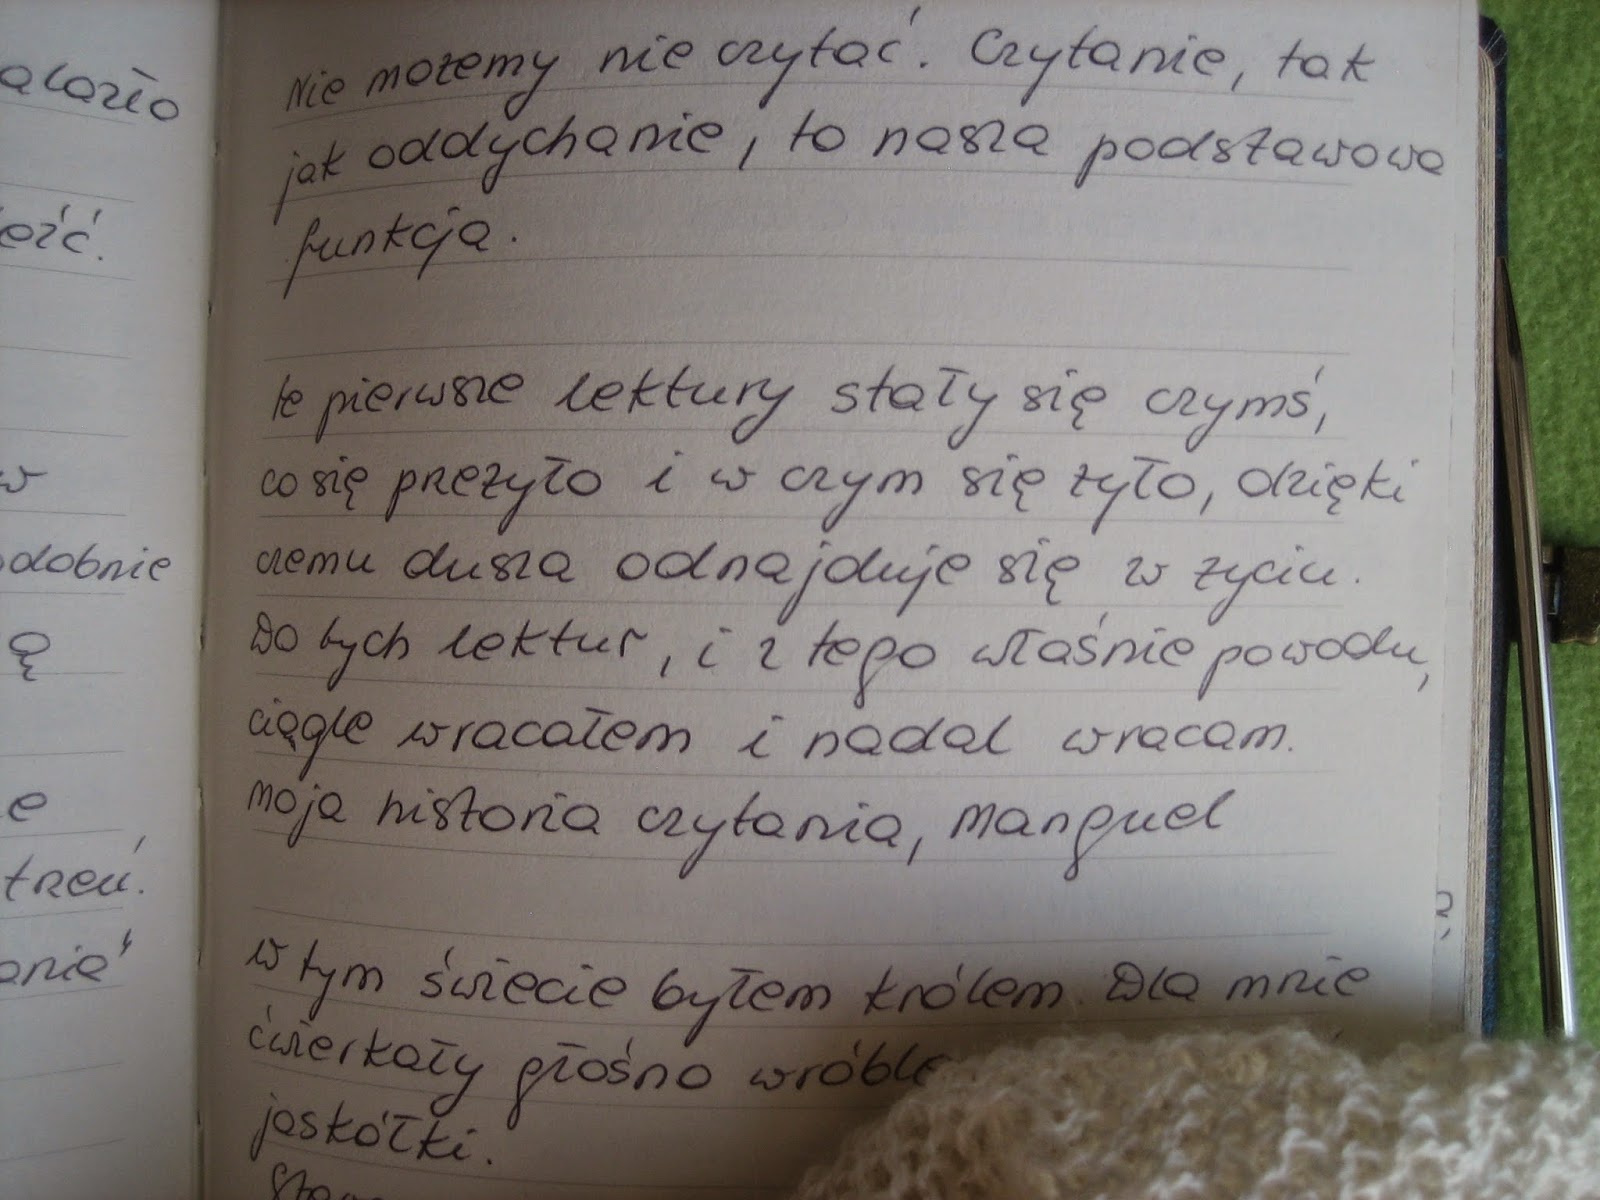 alazło
eźć.
w
odobnie
ą
e
treń.
anie"
Nie możemy nie czytać. Czytanie, tak
jak oddychanie, to nasza podstawowa
funkcja.
te pierwsze lektury stały się czymś,
co się przeżyło i w czym się żyło, dzięki
czemu dusza odnajduje się w życiu.
Do tych lektur, i z tego właśnie powodu,
ciągle wracałem i nadal wracam.
Moja historia czytania, Manguel
w tym świecie byłem królem. Dla mnie
ćwierkały głośno wróble
jaskółki.